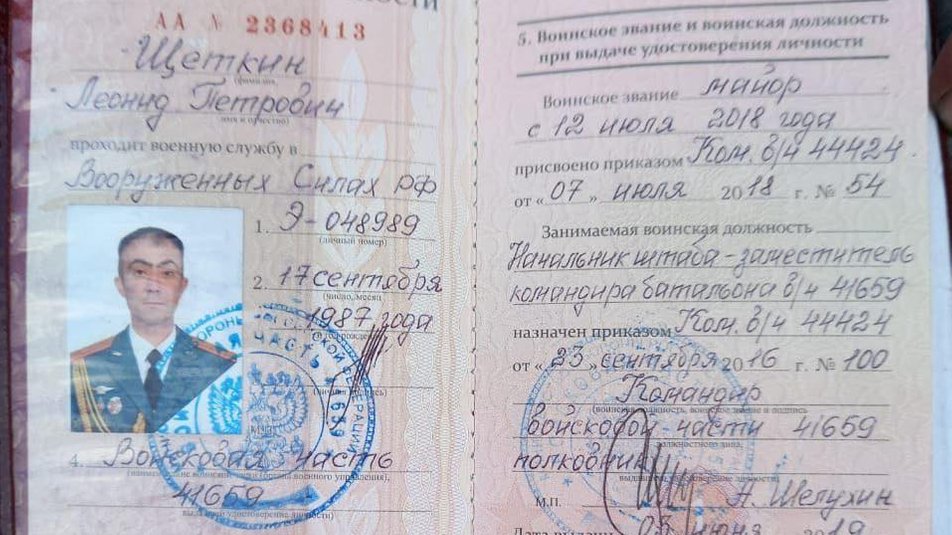 АА № 2368413
Щеткин
(фамилия
Леонид Петрович
имя и отчество)
проходит военную службу в
Вооруженных Силах РФ
1. Э-048989
(личный номер)
2. 17 сентября
(число, месяц
1987 года
4. Войсковая часть
41659
5. Воинское звание и воинская должность
при выдаче удостоверения личности
Воинское звание майор
с 12 июля 2018 года
присвоено приказом Ком. в/ч 44424
от «07» июля 2018 г. № 54
Занимаемая воинская должность
Начальник штаба-заместитель
командира батальона в/ч 41659
назначен приказом Ком. в/ч 44424
от «23» сентября 2016 г. № 100
Командир
(воинская должность, воинское звание и подпись
войсковой части 41659
должностного лица,
полковник
А. Шелухин
М.П.
Дата выдачи 05 июня 2019